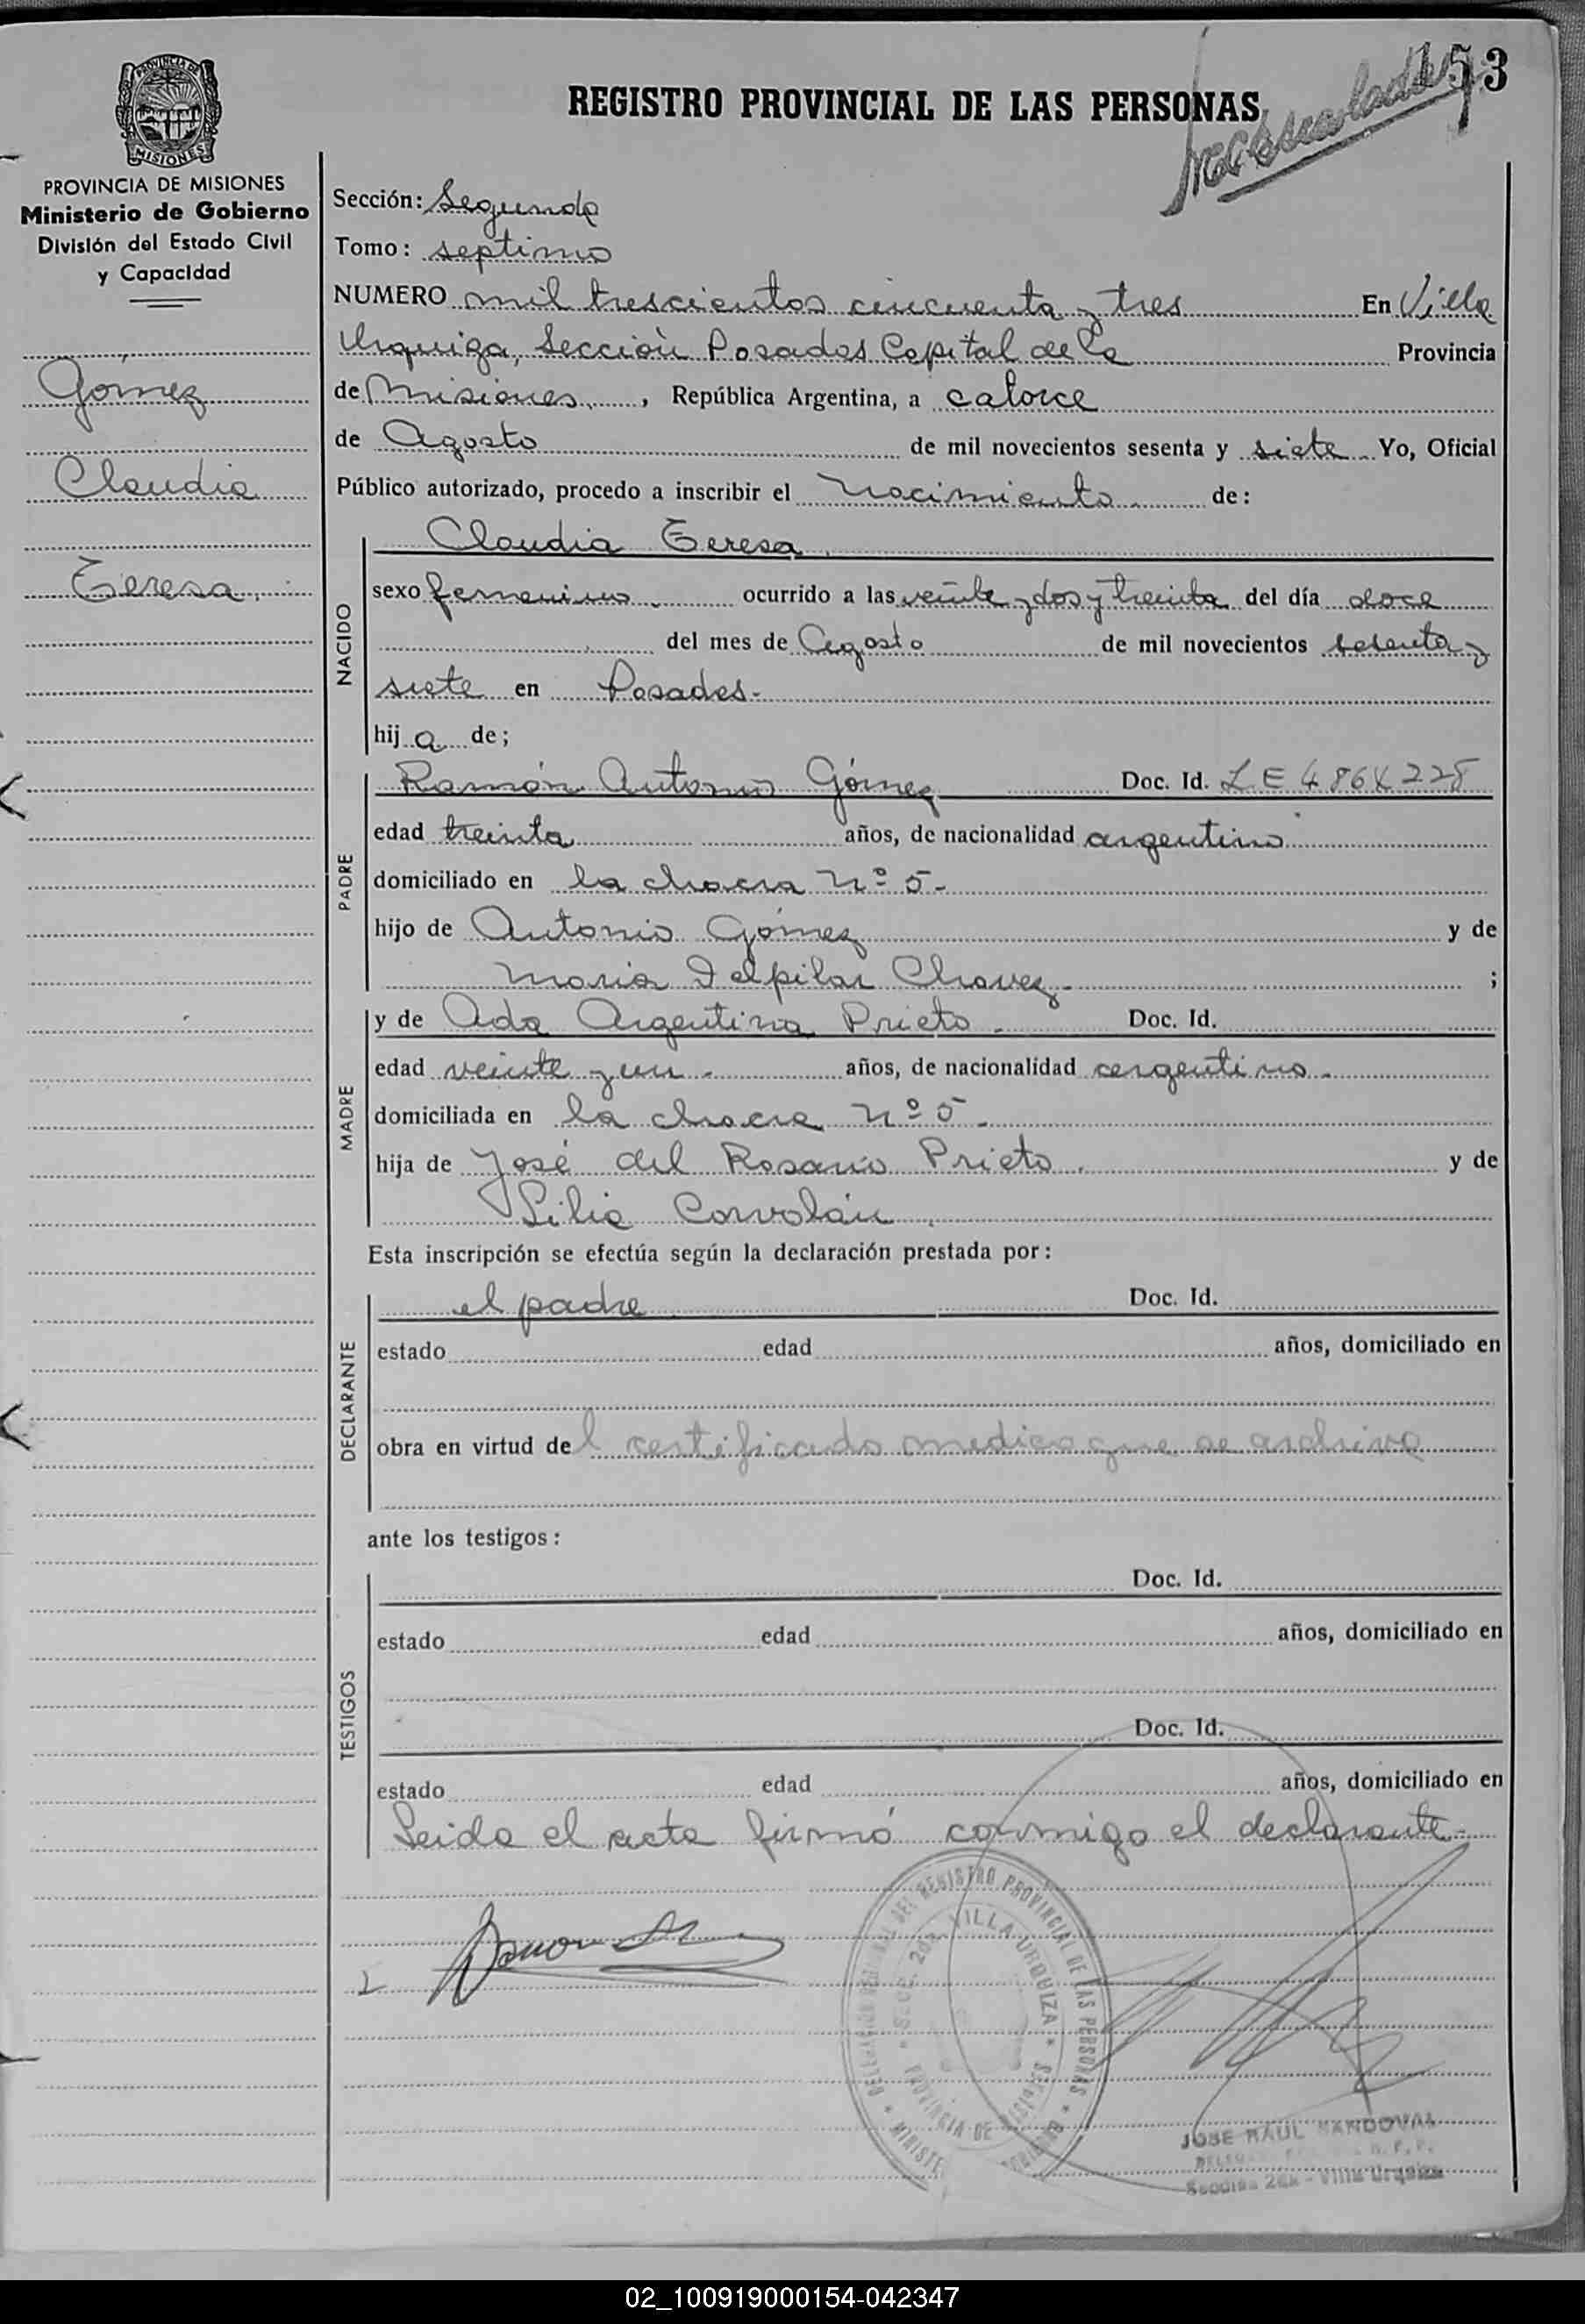 153
REGISTRO PROVINCIAL DE LAS PERSONAS
PROVINCIA DE MISIONES
PROVINCIA DE MISIONES
Ministerio de Gobierno
División del Estado Civil
y Capacidad
Gómez
Claudia
Teresa
Sección: Segunda
Tomo: septimo
NUMERO mil trescientos cincuenta y tres En Villa
Urquiza, Sección Posadas Capital de la Provincia
de Misiones, República Argentina, a catorce
de Agosto de mil novecientos sesenta y siete Yo, Oficial
Público autorizado, procedo a inscribir el Nacimiento de:
NACIDO
Claudia Teresa
sexo femenino ocurrido a las veinte y dos y treinta del día doce
del mes de Agosto de mil novecientos sesenta y
siete en Posadas.
hij a de;
PADRE
Ramón Antonio Gómez Doc. Id. L E 4864228
edad treinta años, de nacionalidad argentino
domiciliado en la chacra Nº 5-
hijo de Antonio Gómez y de
Maria Delpilar Chavez ;
MADRE
y de Ada Argentina Prieto. Doc. Id.
edad veinte y un. años, de nacionalidad argentino.
domiciliada en la chacra nº 5.
hija de José del Rosario Prieto. y de
Lilia Corvolán
Esta inscripción se efectúa según la declaración prestada por:
DECLARANTE
el padre Doc. Id.
estado edad años, domiciliado en
obra en virtud del certificado medico que se archiva
ante los testigos:
TESTIGOS
Doc. Id.
estado edad años, domiciliado en
Doc. Id.
estado edad años, domiciliado en
Leida el acta firmó conmigo el declarante.
DEL REGISTRO PROVINCIAL DE LAS PERSONAS
SECC. 2da. VILLA URQUIZA
PROVINCIA DE MISIONES
JOSE RAUL SANDOVAL
Sección 2da - Villa Urquiza
02_100919000154-042347